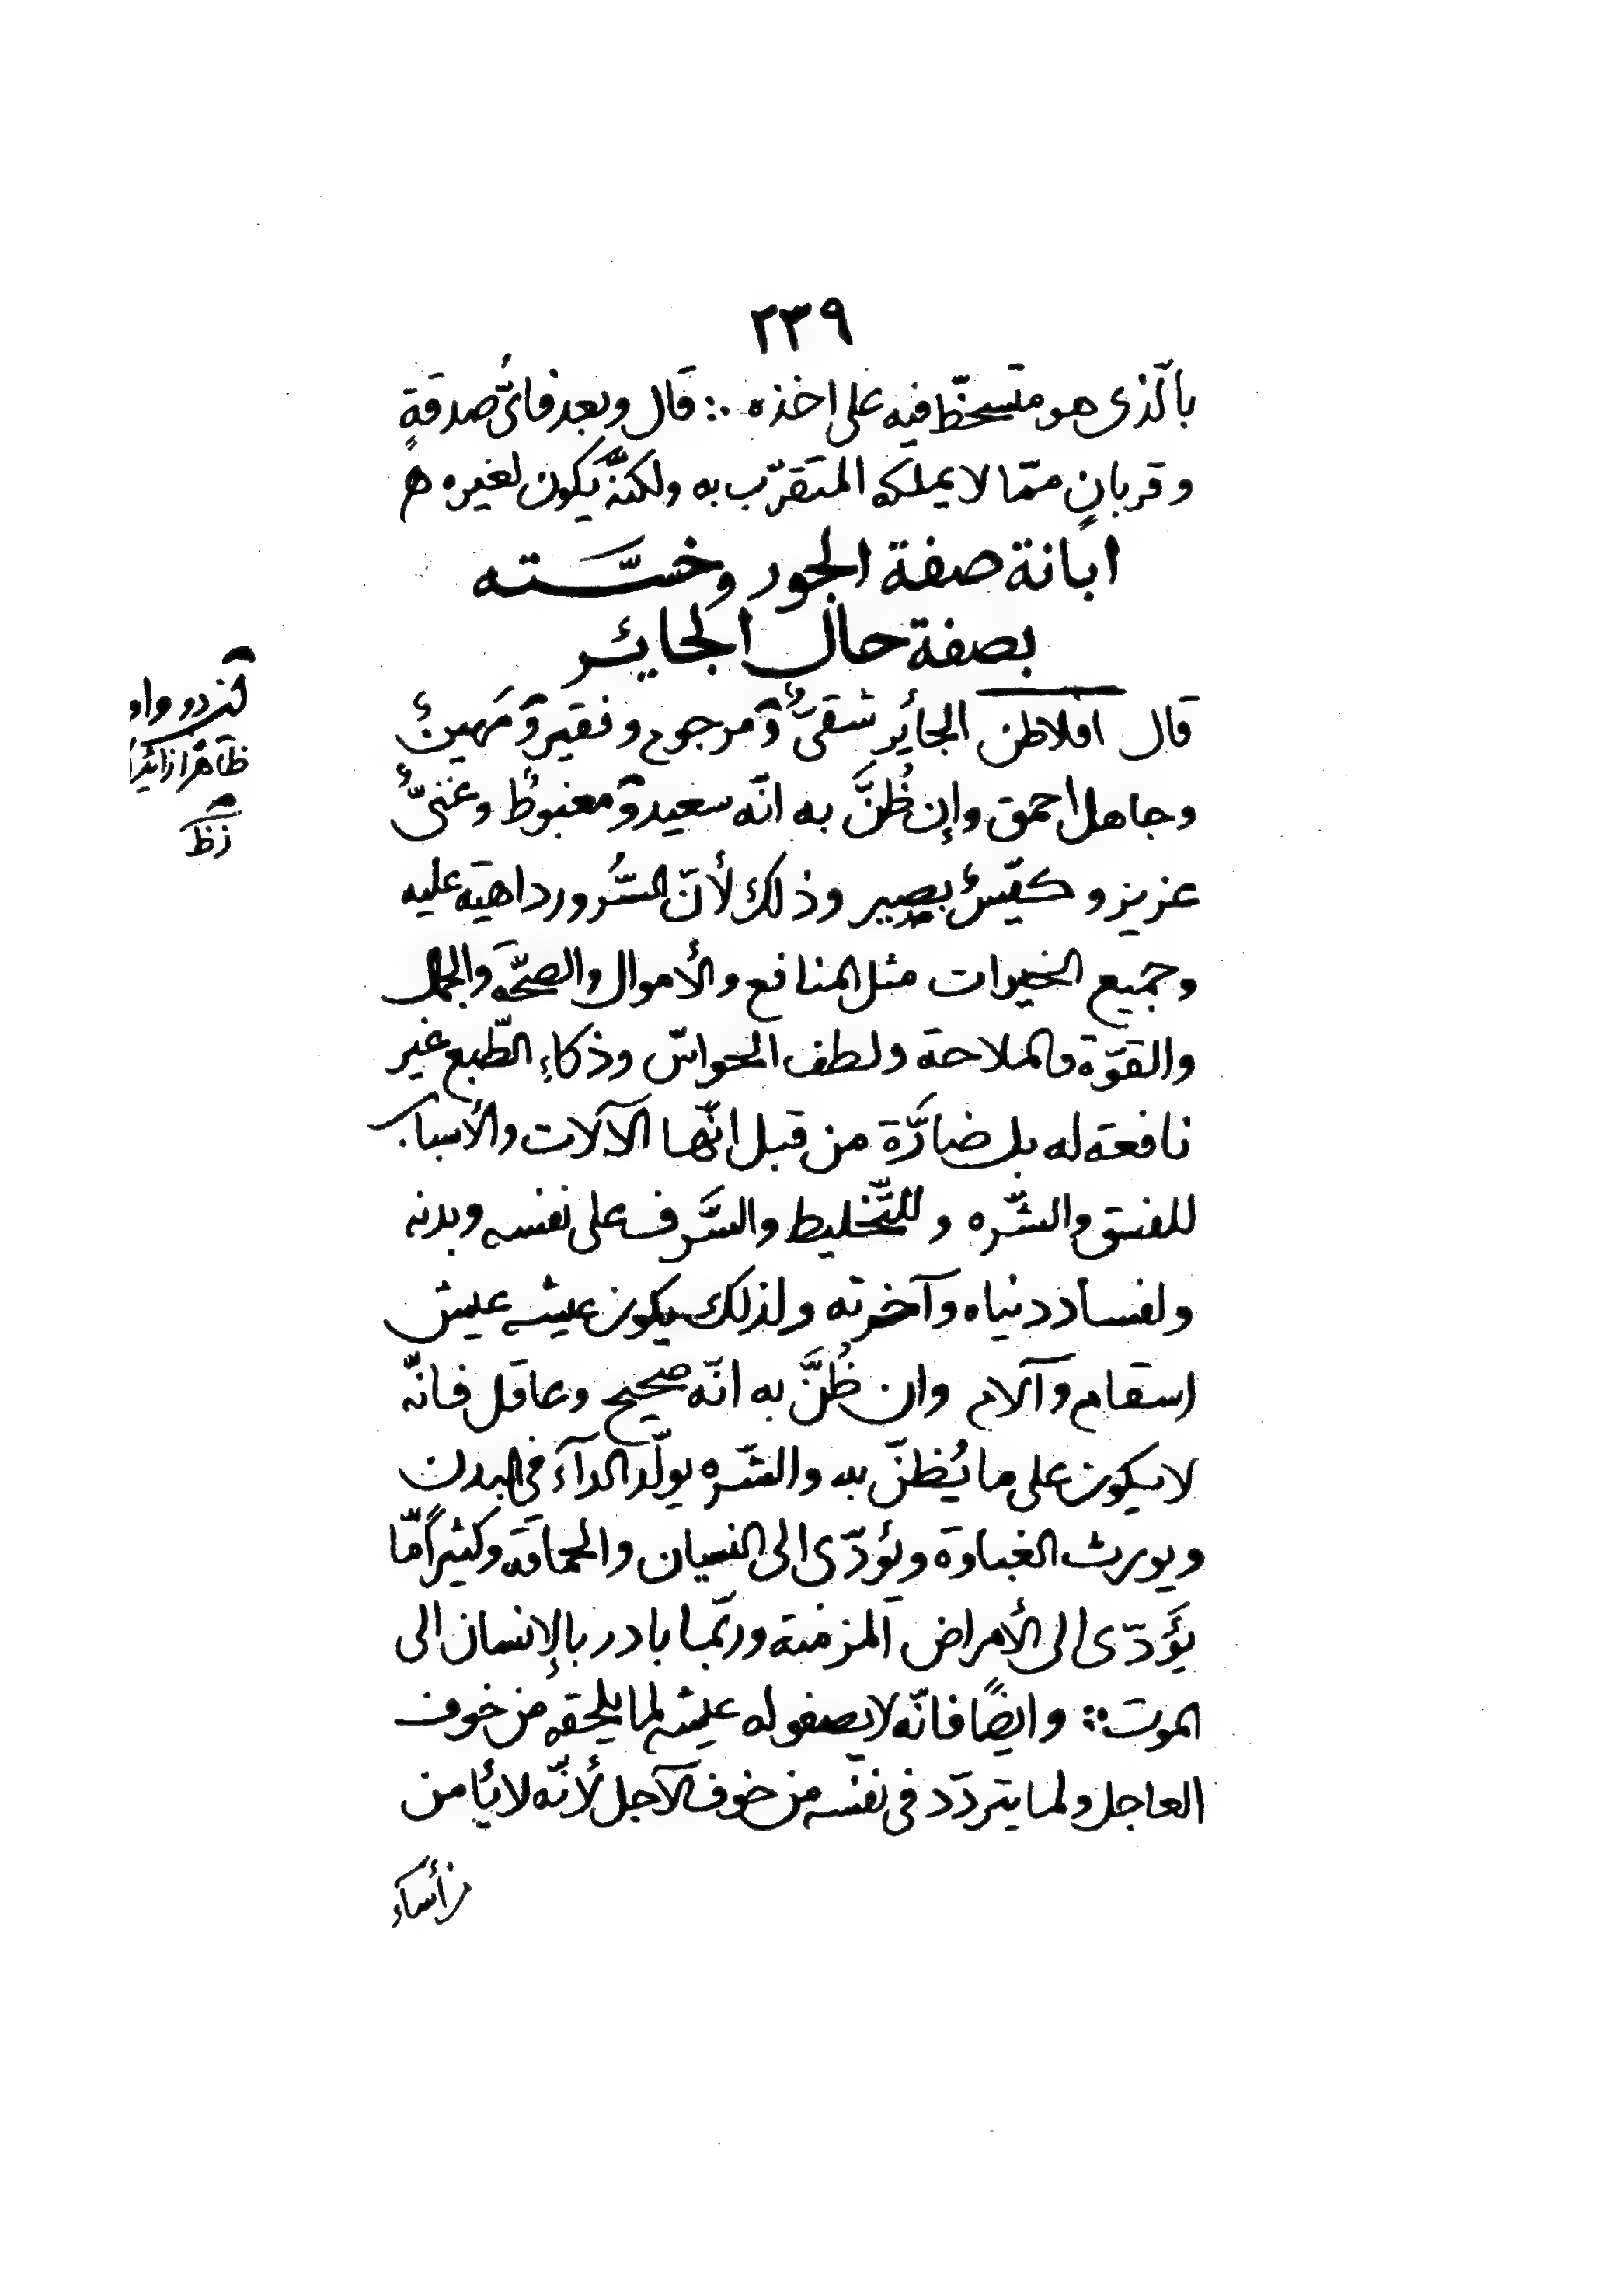 ٢٣٩
بالّذى هو متسخّط فيه على اخذه ∴ قال وبعد فاىُّ صدقةٍ
وقربانٍ ممّا لا يملكه المتقرّب به ولكنّه يكون لغيره ه
ابانة صفة الجور وخسَّته
بصفة حال الجائر
قال افلاطن الجائر شقىٌّ و مرجوم وفقير و مَهينٌ
وجاهل احمق وإن ظُنَّ به انّه سعيد و مغبوطٌ وغنىٌّ
عزيز و كيّسٌ بصير وذلك لأنّ السُّرور داهية عليه
وجميع الخيرات مثل المنافع والأموال والصحّة والجمال
والقوّة والملاحة ولطف الحواسّ وذكاءِ الطّبع غير
نافعة له بل ضارَّة من قبل انّها الآلات والأسباب
للفسق والشّره و للتّخليط والسَّرف على نفسه وبدنه
ولفساد دنياه وآخرته ولذلك يكون عيشه عيش
اسقام وآلام وان ظُنَّ به انّه صحيح وعاقل فانّه
لا يكون على ما يُظنّ به والشّره يولّد الدآء فى البدن
ويورث الغباوة ويؤدّى الى النسيان والحماقة وكثيراً مّا
يؤَدّى الى الأمراض المزمنة وربّما بادر بالإنسان الى
الموت ∴ وايضًا فانّه لا يصفو له عيشه لما يلحقه من خوف
العاجل ولما يتردّد فى نفسه من خوف الآجل لأنّه لا يأمن
دو واو
ظاهراً زائد
من أساء